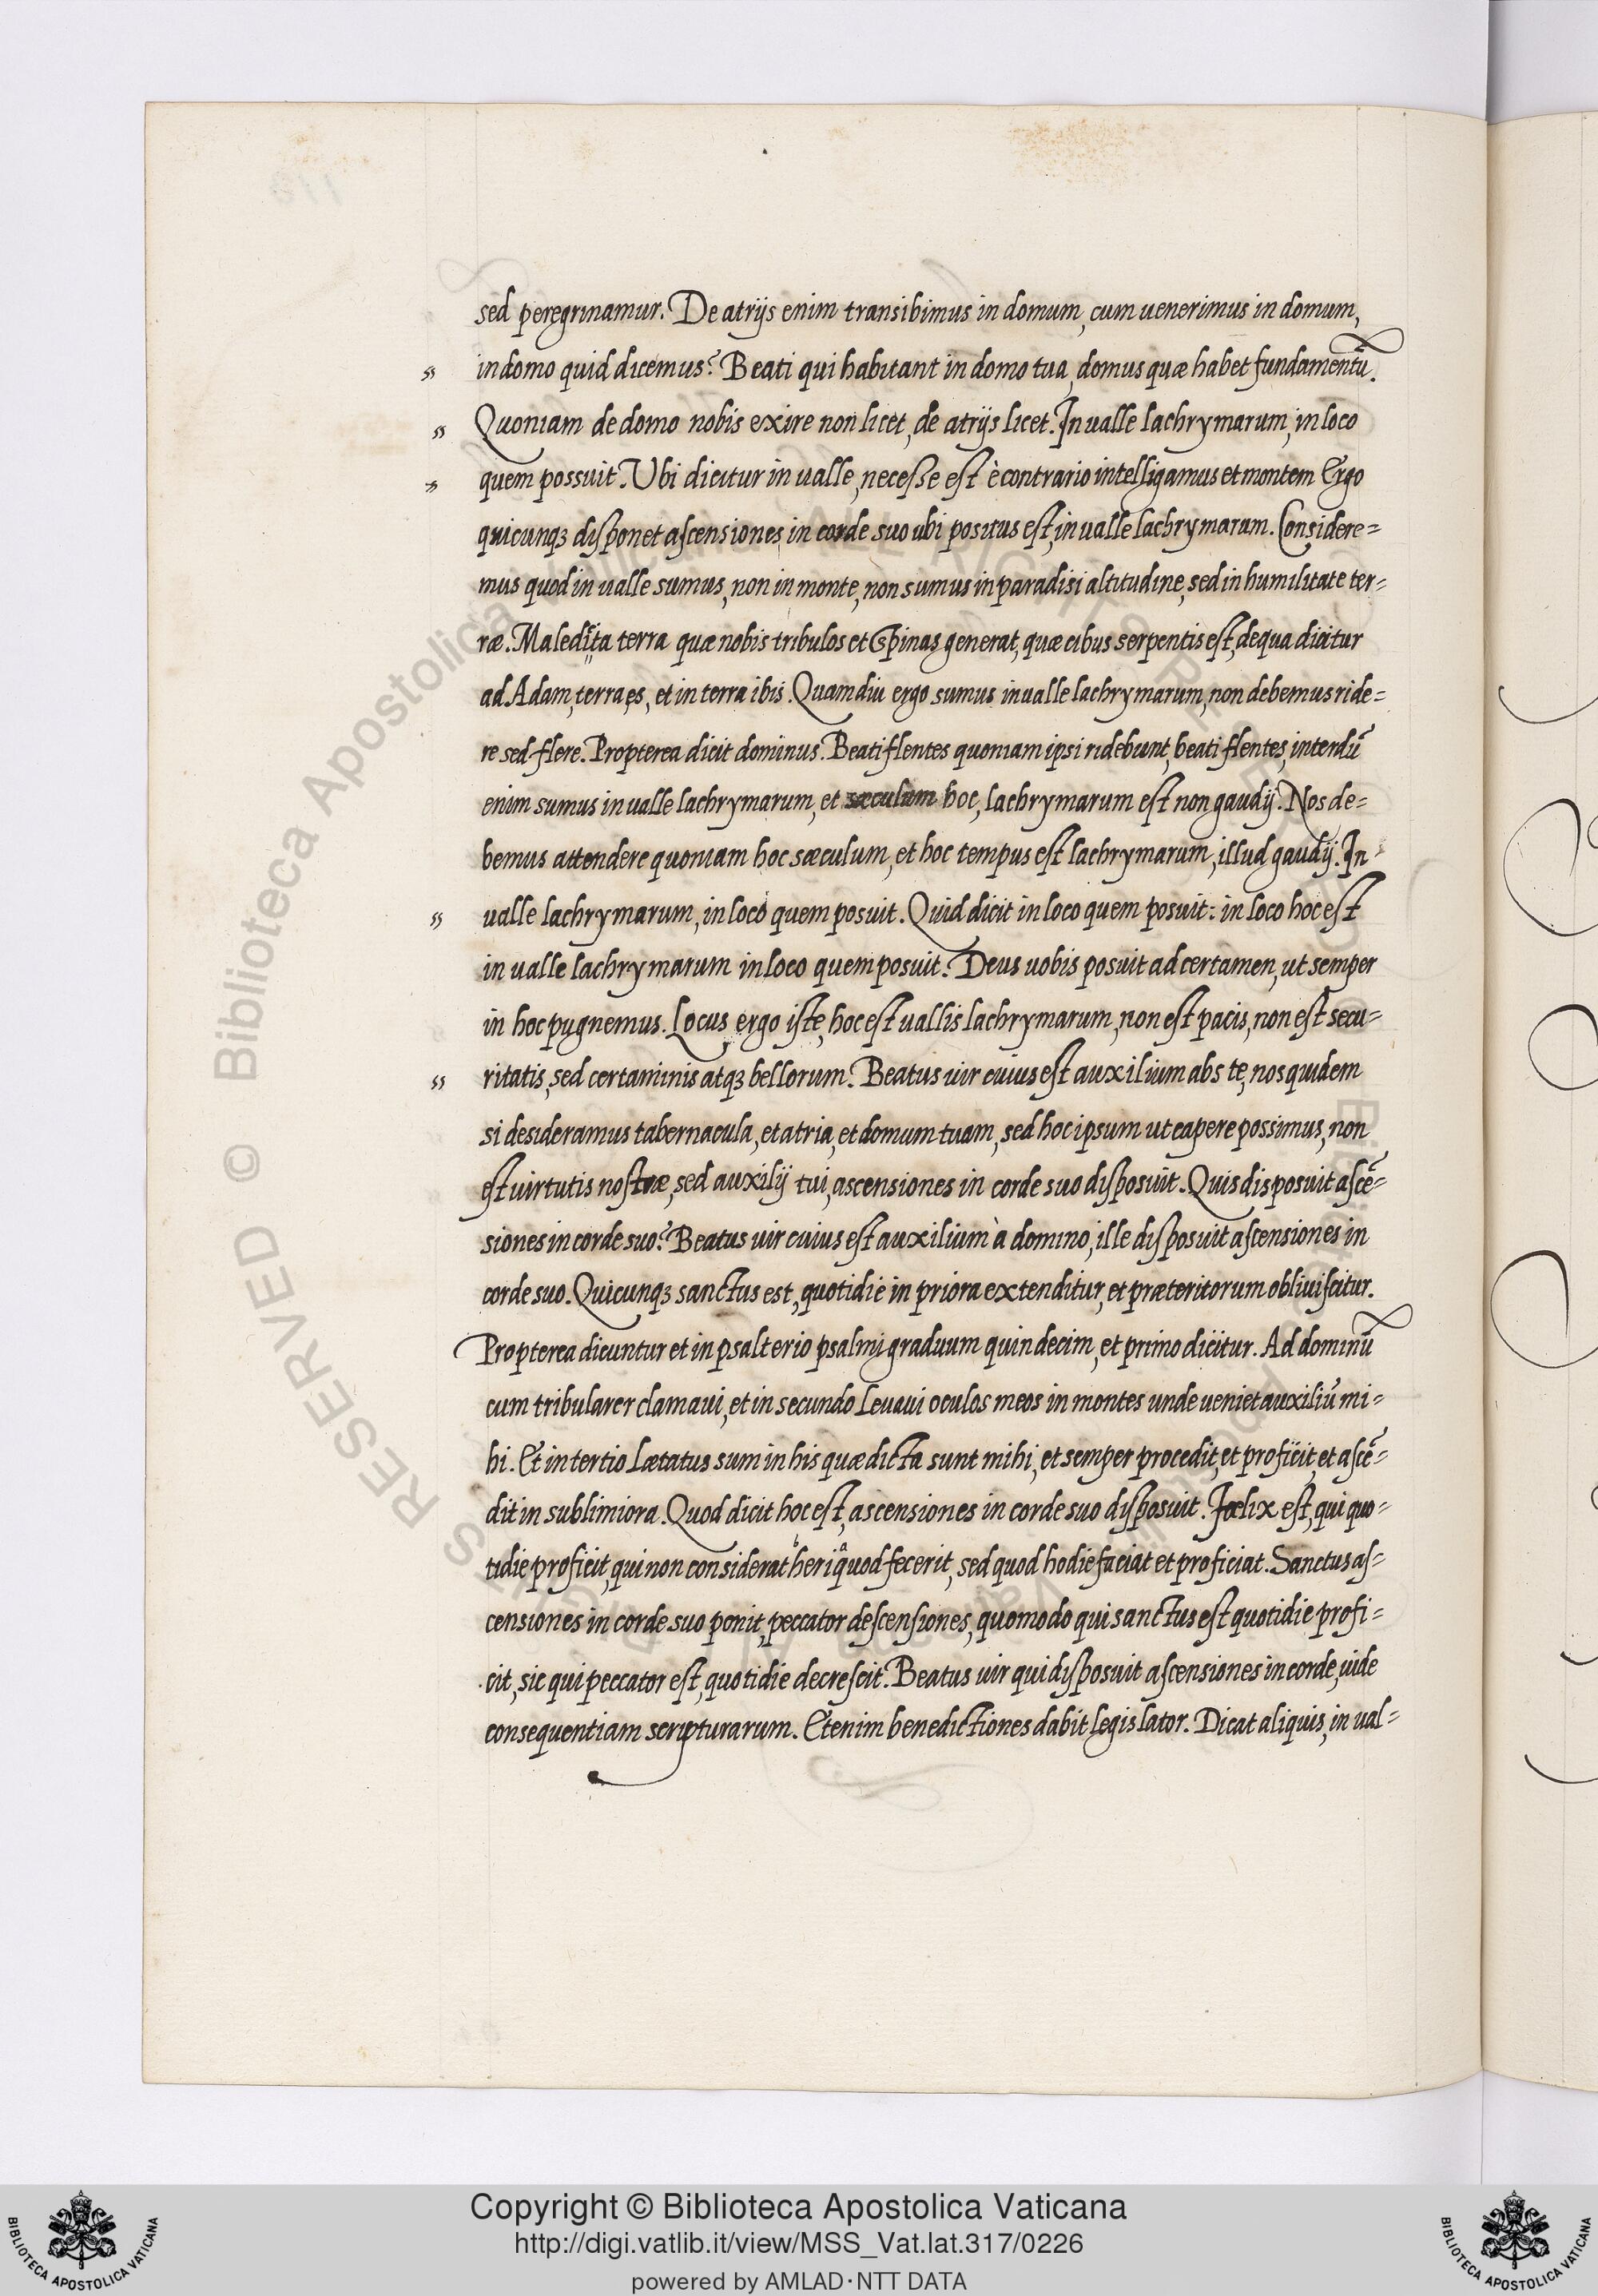 sed peregrinamur. De atrijs enim transibimus in domum, cum uenerimus in domum,
" in domo quid dicemus? Beati qui habitant in domo tua, domus quæ habet fundamentū.
" Quoniam de domo nobis exire non licet, de atrijs licet. In ualle lachrymarum, in loco
" quem possuit. Vbi dicitur in ualle, necesse est è contrario intelligamus et montem Ergo
quicunqꝫ disponet ascensiones in corde suo ubi positus est, in ualle lachrymarum. Considere=
mus quod in ualle sumus, non in monte, non sumus in paradisi altitudine, sed in humilitate ter=
ræ. Maledicta terra quæ nobis tribulos et spinas generat, quæ cibus serpentis est, de qua dicitur
ad Adam, terra es, et in terra ibis. Quamdiu ergo sumus in ualle lachrymarum, non debemus ride=
re sed flere. Propterea dicit dominus. Beati flentes quoniam ipsi ridebunt, beati flentes, interdū
enim sumus in ualle lachrymarum, et sæculum hoc, lachrymarum est non gaudij. Nos de=
bemus attendere quoniam hoc sæculum, et hoc tempus est lachrymarum, illud gaudij. In
" ualle lachrymarum, in loco quem posuit. Quid dicit in loco quem posuit: in loco hoc est
in ualle lachrymarum in loco quem posuit. Deus uobis posuit ad certamen, ut semper
in hoc pugnemus. Locus ergo iste, hoc est uallis lachrymarum, non est pacis, non est secu=
" ritatis, sed certaminis atqꝫ bellorum. Beatus uir cuius est auxilium abs te, nos quidem
si desideramus tabernacula, et atria, et domum tuam, sed hoc ipsum ut capere possimus, non
est uirtutis nostræ, sed auxilij tui, ascensiones in corde suo disposuit. Quis disposuit ascē=
siones in corde suo? Beatus uir cuius est auxilium à domino, ille disposuit ascensiones in
corde suo. Quicunqꝫ sanctus est, quotidie in priora extenditur, et præteritorum obliuiscitur.
Propterea dicuntur et in psalterio psalmi graduum quindecim, et primo dicitur. Ad dominū
cum tribularer clamaui, et in secundo Leuaui oculos meos in montes unde ueniet auxiliū mi=
hi. Et in tertio Lætatus sum in his quæ dicta sunt mihi, et semper procedit, et proficit, et ascē=
dit in sublimiora. Quod dicit hoc est, ascensiones in corde suo disposuit. Fœlix est, qui quo=
tidie proficit, qui non considerat heri quod fecerit, sed quod hodie faciat et proficiat. Sanctus as=
censiones in corde suo ponit, peccator descensiones, quomodo qui sanctus est quotidie profi=
cit, sic qui peccator est, quotidie decrescit. Beatus uir qui disposuit ascensiones in corde, uide
consequentiam scripturarum. Etenim benedictiones dabit legislator. Dicat aliquis, in ual=
Copyright © Biblioteca Apostolica Vaticana
http://digi.vatlib.it/view/MSS_Vat.lat.317/0226
powered by AMLAD·NTT DATA